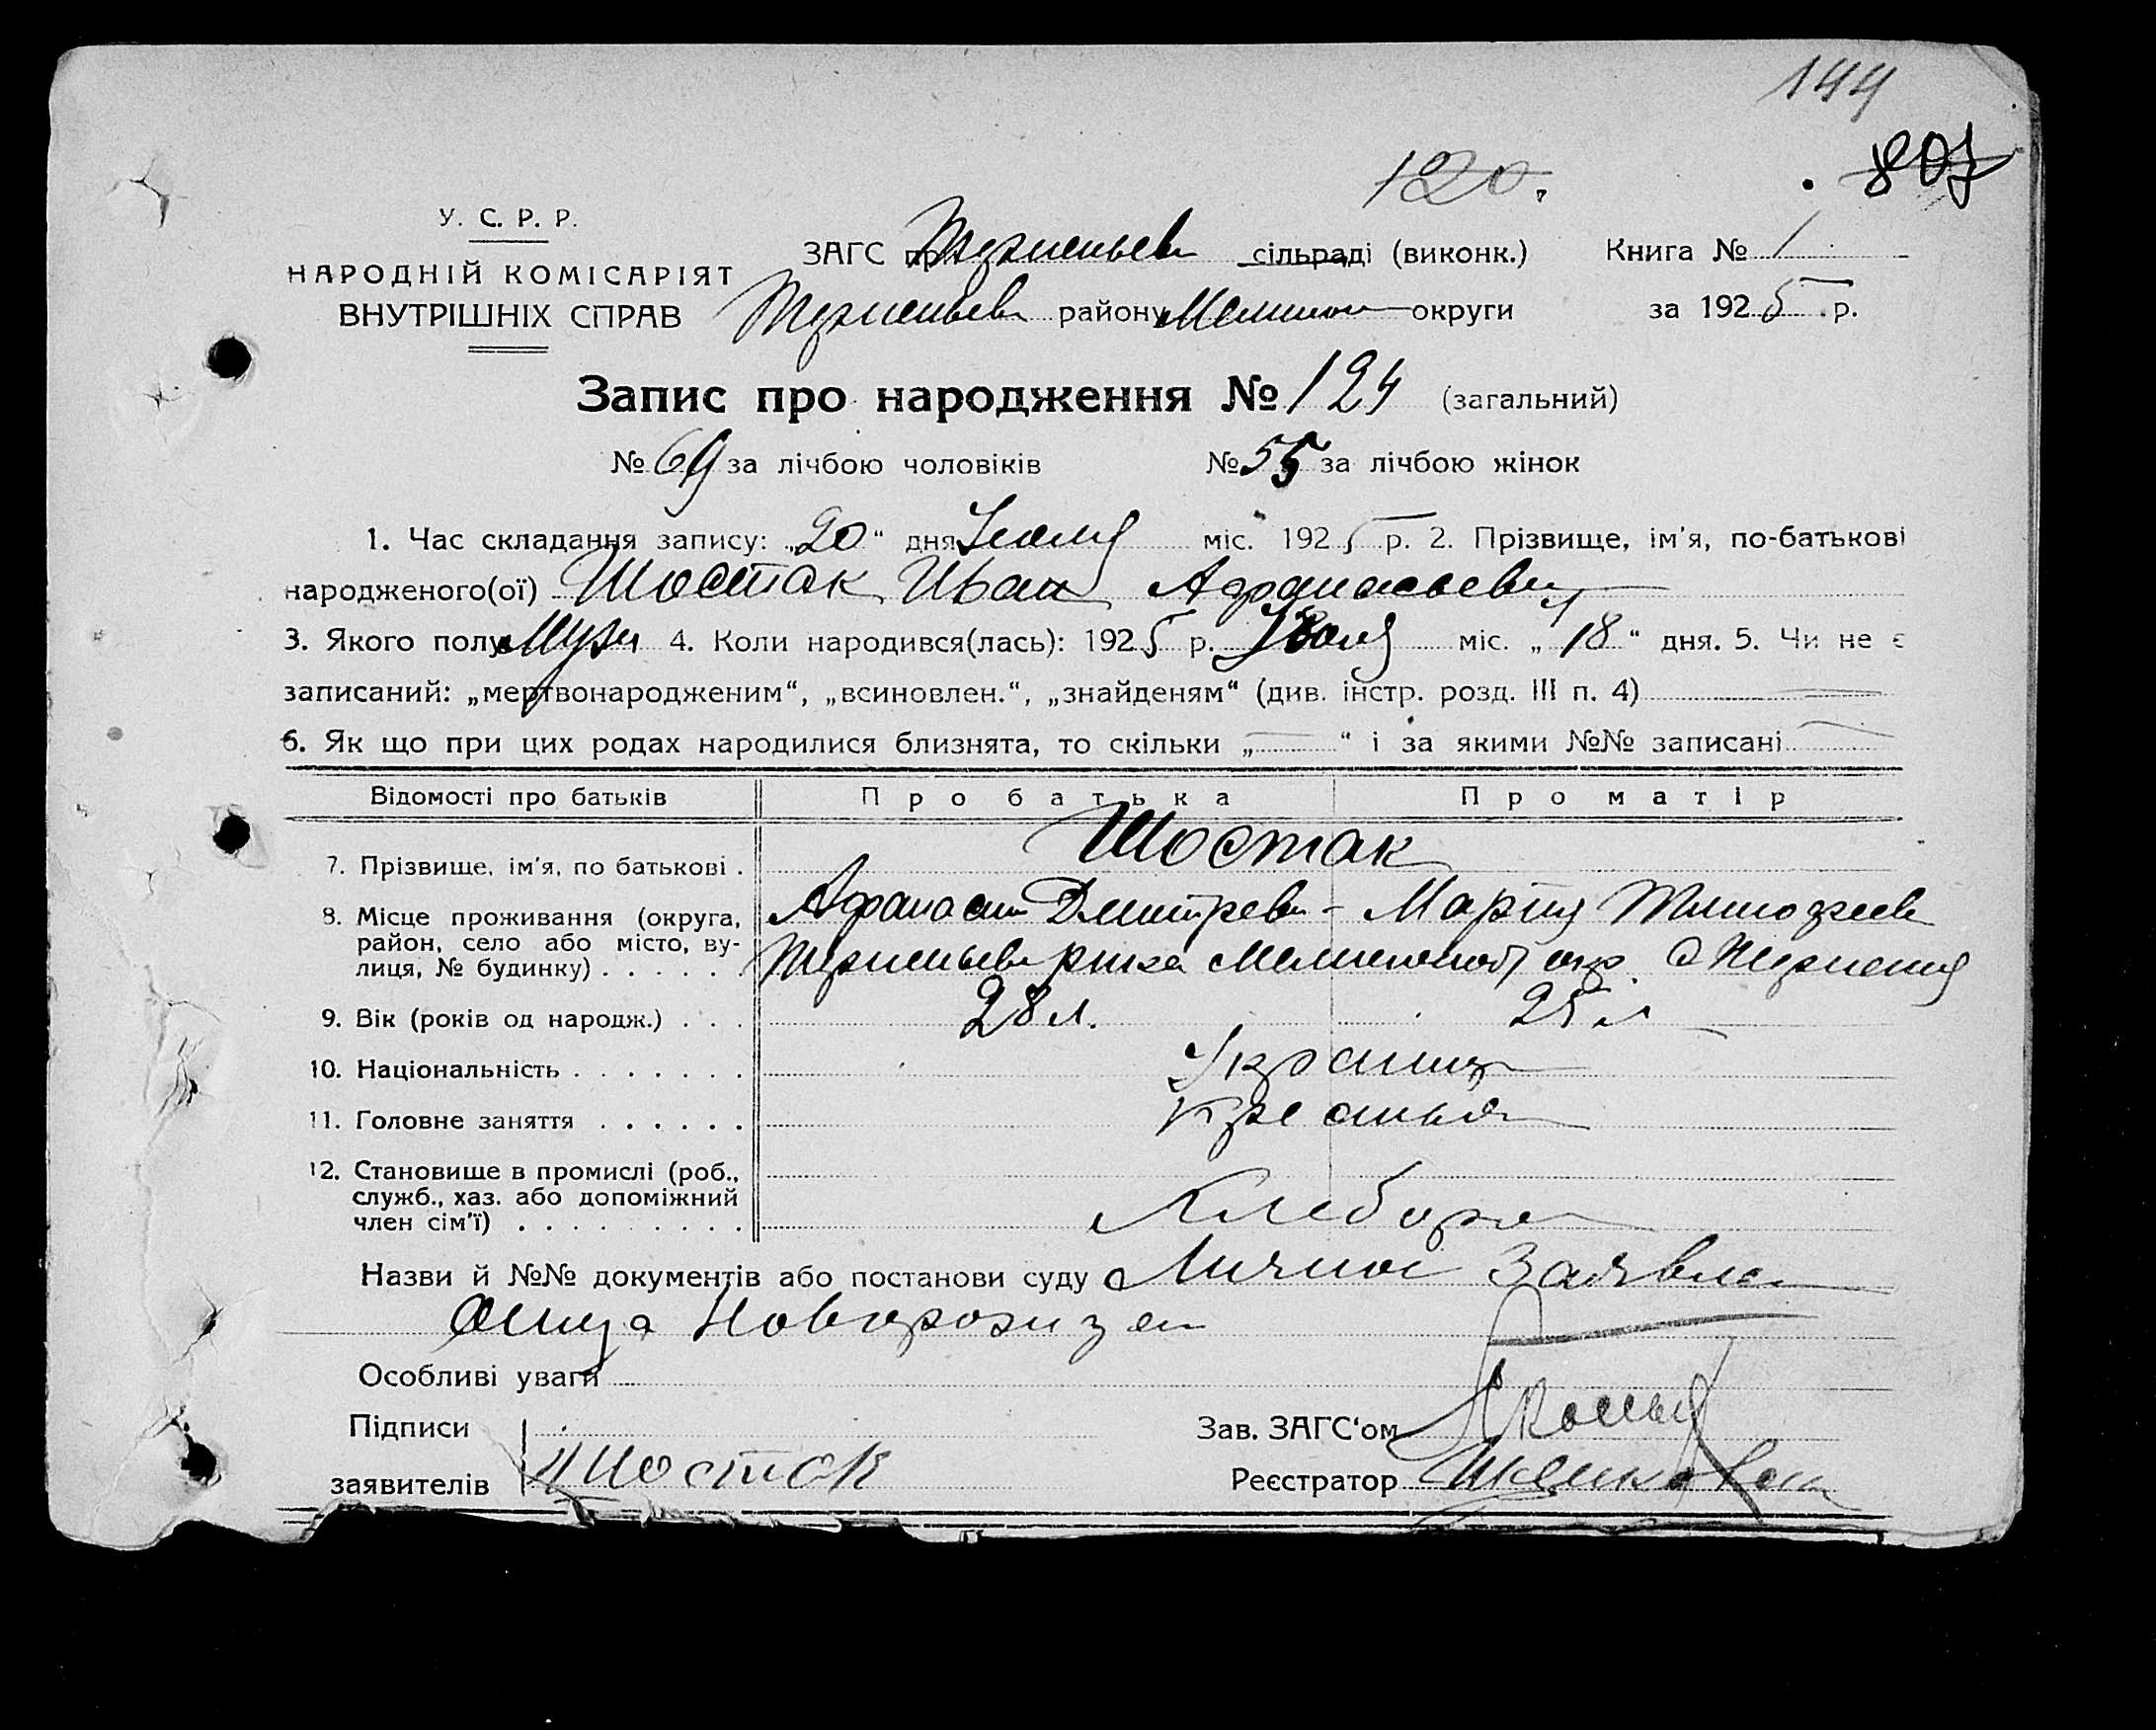 144
120.
807
У. С. Р. Р.
НАРОДНІЙ КОМІСАРІЯТ
ВНУТРІШНІХ СПРАВ
ЗАГС при сільраді (виконк.) Книга № 1
району округи за 1925 р.
Запис про народження № 124 (загальний)
№ 69 за лічбою чоловіків № 55 за лічбою жінок
1. Час складання запису: „20“ дня Июля міс. 1925 р. 2. Прізвище, ім'я, по-батькові
народженого(ої) Шостак Иван Афанасьеви
3. Якого полу Муж 4. Коли народився(лась): 1925 р. Июля міс. „18“ дня. 5. Чи не є
записаний: „мертвонародженим“, „всиновлен.“, „знайденям“ (див. інстр. розд. III п. 4)
6. Як що при цих родах народилися близнята, то скільки „ “ і за якими №№ записані
Відомості про батьків Про батька Про матір
7. Прізвище, ім'я, по батькові . Шостак
8. Місце проживання (округа, Афанасий Дмитрев - Мария
район, село або місто, ву-
лиця, № будинку) . . . . . .
9. Вік (років од народж.) . . . 28 л. 25 л
10. Національність . . . . . . . Украинц
11. Головне заняття . . . . . . Крестьян
12. Становище в промислі (роб.,
служб., хаз. або допоміжний
член сім'ї) . . . . . . . . . Хлебороб
Назви й №№ документів або постанови суду Личное Заявлен
Отца Новорожден
Особливі уваги
Підписи
заявителів Шостак
Зав. ЗАГС'ом
Реєстратор